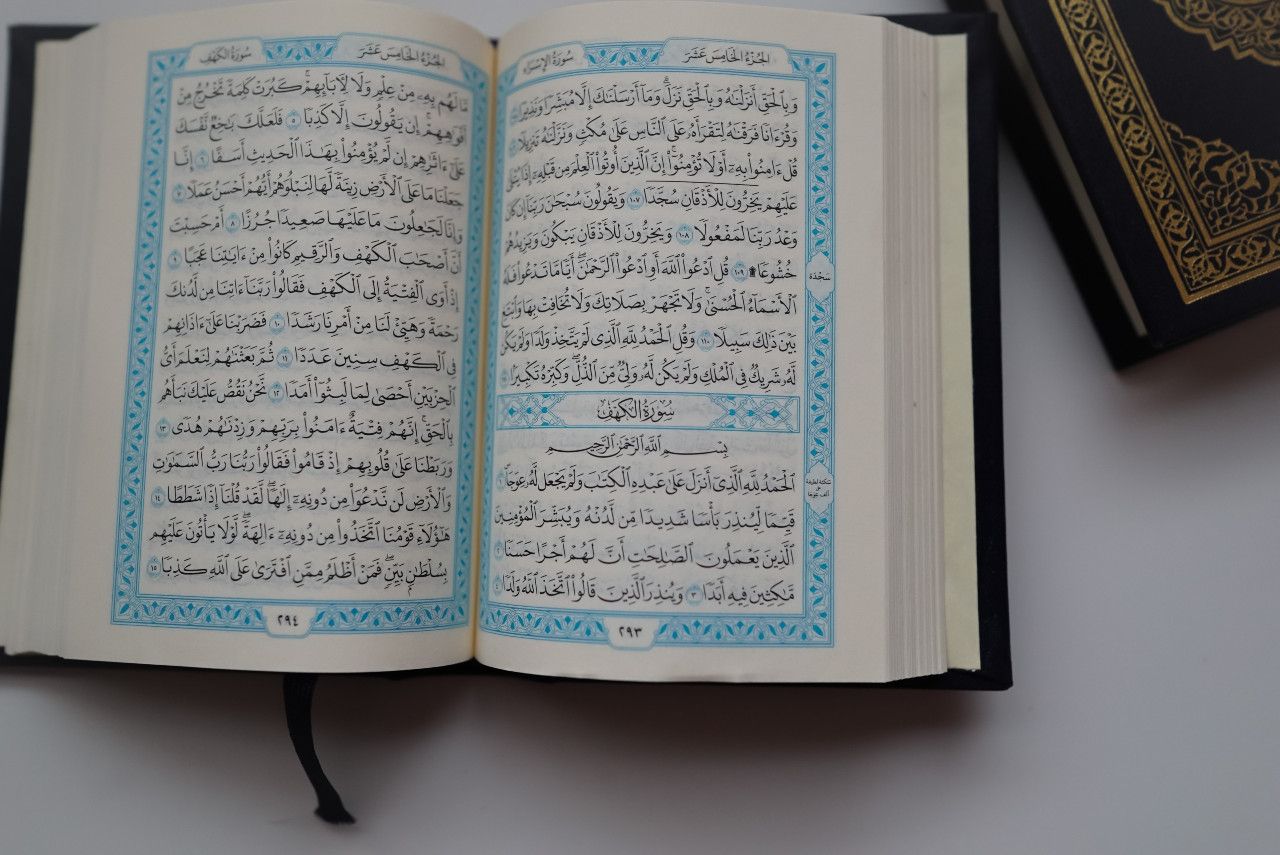 الجزء الخامس عشر
سورة الإسراء
وَبِٱلْحَقِّ أَنزَلْنَٰهُ وَبِٱلْحَقِّ نَزَلَ ۗ وَمَآ أَرْسَلْنَٰكَ إِلَّا مُبَشِّرًا وَنَذِيرًا
وَقُرْءَانًا فَرَقْنَٰهُ لِتَقْرَأَهُۥ عَلَى ٱلنَّاسِ عَلَىٰ مُكْثٍ وَنَزَّلْنَٰهُ تَنزِيلًا
قُلْ ءَامِنُوا۟ بِهِۦٓ أَوْ لَا تُؤْمِنُوٓا۟ ۚ إِنَّ ٱلَّذِينَ أُوتُوا۟ ٱلْعِلْمَ مِن قَبْلِهِۦٓ إِذَا يُتْلَىٰ
عَلَيْهِمْ يَخِرُّونَ لِلْأَذْقَانِ سُجَّدًا ١٠٧ وَيَقُولُونَ سُبْحَٰنَ رَبِّنَآ إِن كَانَ
وَعْدُ رَبِّنَا لَمَفْعُولًا ١٠٨ وَيَخِرُّونَ لِلْأَذْقَانِ يَبْكُونَ وَيَزِيدُهُمْ
خُشُوعًا ۩ ١٠٩ قُلِ ٱدْعُوا۟ ٱللَّهَ أَوِ ٱدْعُوا۟ ٱلرَّحْمَٰنَ ۖ أَيًّا مَّا تَدْعُوا۟ فَلَهُ
سجدة
ٱلْأَسْمَآءُ ٱلْحُسْنَىٰ ۚ وَلَا تَجْهَرْ بِصَلَاتِكَ وَلَا تُخَافِتْ بِهَا وَٱبْتَغِ
بَيْنَ ذَٰلِكَ سَبِيلًا ١١٠ وَقُلِ ٱلْحَمْدُ لِلَّهِ ٱلَّذِى لَمْ يَتَّخِذْ وَلَدًا وَلَمْ يَكُن
لَّهُۥ شَرِيكٌ فِى ٱلْمُلْكِ وَلَمْ يَكُن لَّهُۥ وَلِىٌّ مِّنَ ٱلذُّلِّ ۖ وَكَبِّرْهُ تَكْبِيرًۢا
سُورَةُ الكَهْفِ
بِسْمِ ٱللَّهِ ٱلرَّحْمَٰنِ ٱلرَّحِيمِ
ٱلْحَمْدُ لِلَّهِ ٱلَّذِىٓ أَنزَلَ عَلَىٰ عَبْدِهِ ٱلْكِتَٰبَ وَلَمْ يَجْعَل لَّهُۥ عِوَجَا ۜ ١
قَيِّمًا لِّيُنذِرَ بَأْسًا شَدِيدًا مِّن لَّدُنْهُ وَيُبَشِّرَ ٱلْمُؤْمِنِينَ
ٱلَّذِينَ يَعْمَلُونَ ٱلصَّٰلِحَٰتِ أَنَّ لَهُمْ أَجْرًا حَسَنًا ٢
مَّٰكِثِينَ فِيهِ أَبَدًا ٣ وَيُنذِرَ ٱلَّذِينَ قَالُوا۟ ٱتَّخَذَ ٱللَّهُ وَلَدًا ٤
٢٩٣
الجزء الخامس عشر
سورة الكهف
مَّا لَهُم بِهِۦ مِنْ عِلْمٍ وَلَا لِءَابَآئِهِمْ ۚ كَبُرَتْ كَلِمَةً تَخْرُجُ مِنْ
أَفْوَٰهِهِمْ ۚ إِن يَقُولُونَ إِلَّا كَذِبًا ٥ فَلَعَلَّكَ بَٰخِعٌ نَّفْسَكَ
عَلَىٰٓ ءَاثَٰرِهِمْ إِن لَّمْ يُؤْمِنُوا۟ بِهَٰذَا ٱلْحَدِيثِ أَسَفًا ٦ إِنَّا
جَعَلْنَا مَا عَلَى ٱلْأَرْضِ زِينَةً لَّهَا لِنَبْلُوَهُمْ أَيُّهُمْ أَحْسَنُ عَمَلًا ٧
وَإِنَّا لَجَٰعِلُونَ مَا عَلَيْهَا صَعِيدًا جُرُزًا ٨ أَمْ حَسِبْتَ
أَنَّ أَصْحَٰبَ ٱلْكَهْفِ وَٱلرَّقِيمِ كَانُوا۟ مِنْ ءَايَٰتِنَا عَجَبًا ٩
إِذْ أَوَى ٱلْفِتْيَةُ إِلَى ٱلْكَهْفِ فَقَالُوا۟ رَبَّنَآ ءَاتِنَا مِن لَّدُنكَ
رَحْمَةً وَهَيِّئْ لَنَا مِنْ أَمْرِنَا رَشَدًا ١٠ فَضَرَبْنَا عَلَىٰٓ ءَاذَانِهِمْ
فِى ٱلْكَهْفِ سِنِينَ عَدَدًا ١١ ثُمَّ بَعَثْنَٰهُمْ لِنَعْلَمَ أَىُّ
ٱلْحِزْبَيْنِ أَحْصَىٰ لِمَا لَبِثُوٓا۟ أَمَدًا ١٢ نَّحْنُ نَقُصُّ عَلَيْكَ نَبَأَهُم
بِٱلْحَقِّ ۚ إِنَّهُمْ فِتْيَةٌ ءَامَنُوا۟ بِرَبِّهِمْ وَزِدْنَٰهُمْ هُدًى ١٣
وَرَبَطْنَا عَلَىٰ قُلُوبِهِمْ إِذْ قَامُوا۟ فَقَالُوا۟ رَبُّنَا رَبُّ ٱلسَّمَٰوَٰتِ
وَٱلْأَرْضِ لَن نَّدْعُوَا۟ مِن دُونِهِۦٓ إِلَٰهًا ۖ لَّقَدْ قُلْنَآ إِذًا شَطَطًا ١٤
هَٰٓؤُلَآءِ قَوْمُنَا ٱتَّخَذُوا۟ مِن دُونِهِۦٓ ءَالِهَةً ۖ لَّوْلَا يَأْتُونَ عَلَيْهِم
بِسُلْطَٰنٍۭ بَيِّنٍ ۖ فَمَنْ أَظْلَمُ مِمَّنِ ٱفْتَرَىٰ عَلَى ٱللَّهِ كَذِبًا ١٥
٢٩٤